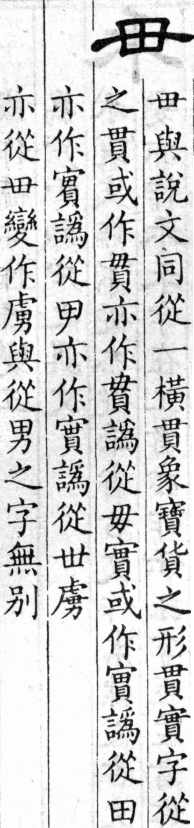 毌
毌與說文同從一橫貫象寶貨之形貫實字從
之貫或作貫亦作貫譌從毋實或作實譌從田
亦作實譌從亦作實譌從世虜
亦從毌變作虜與從男之字無别